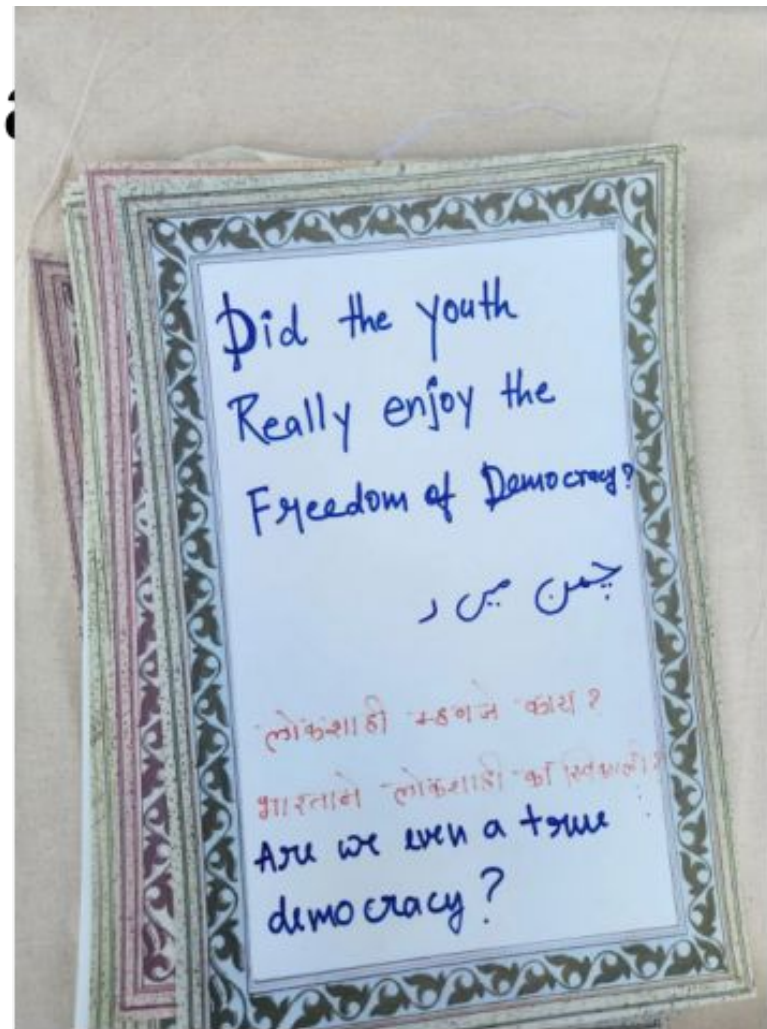 Did the youth
Really enjoy the
Freedom of Democracy?
چمن میں ر
लोकशाही म्हणजे काय?
भारताने लोकशाही का स्विकारली?
Are we even a true
democracy?